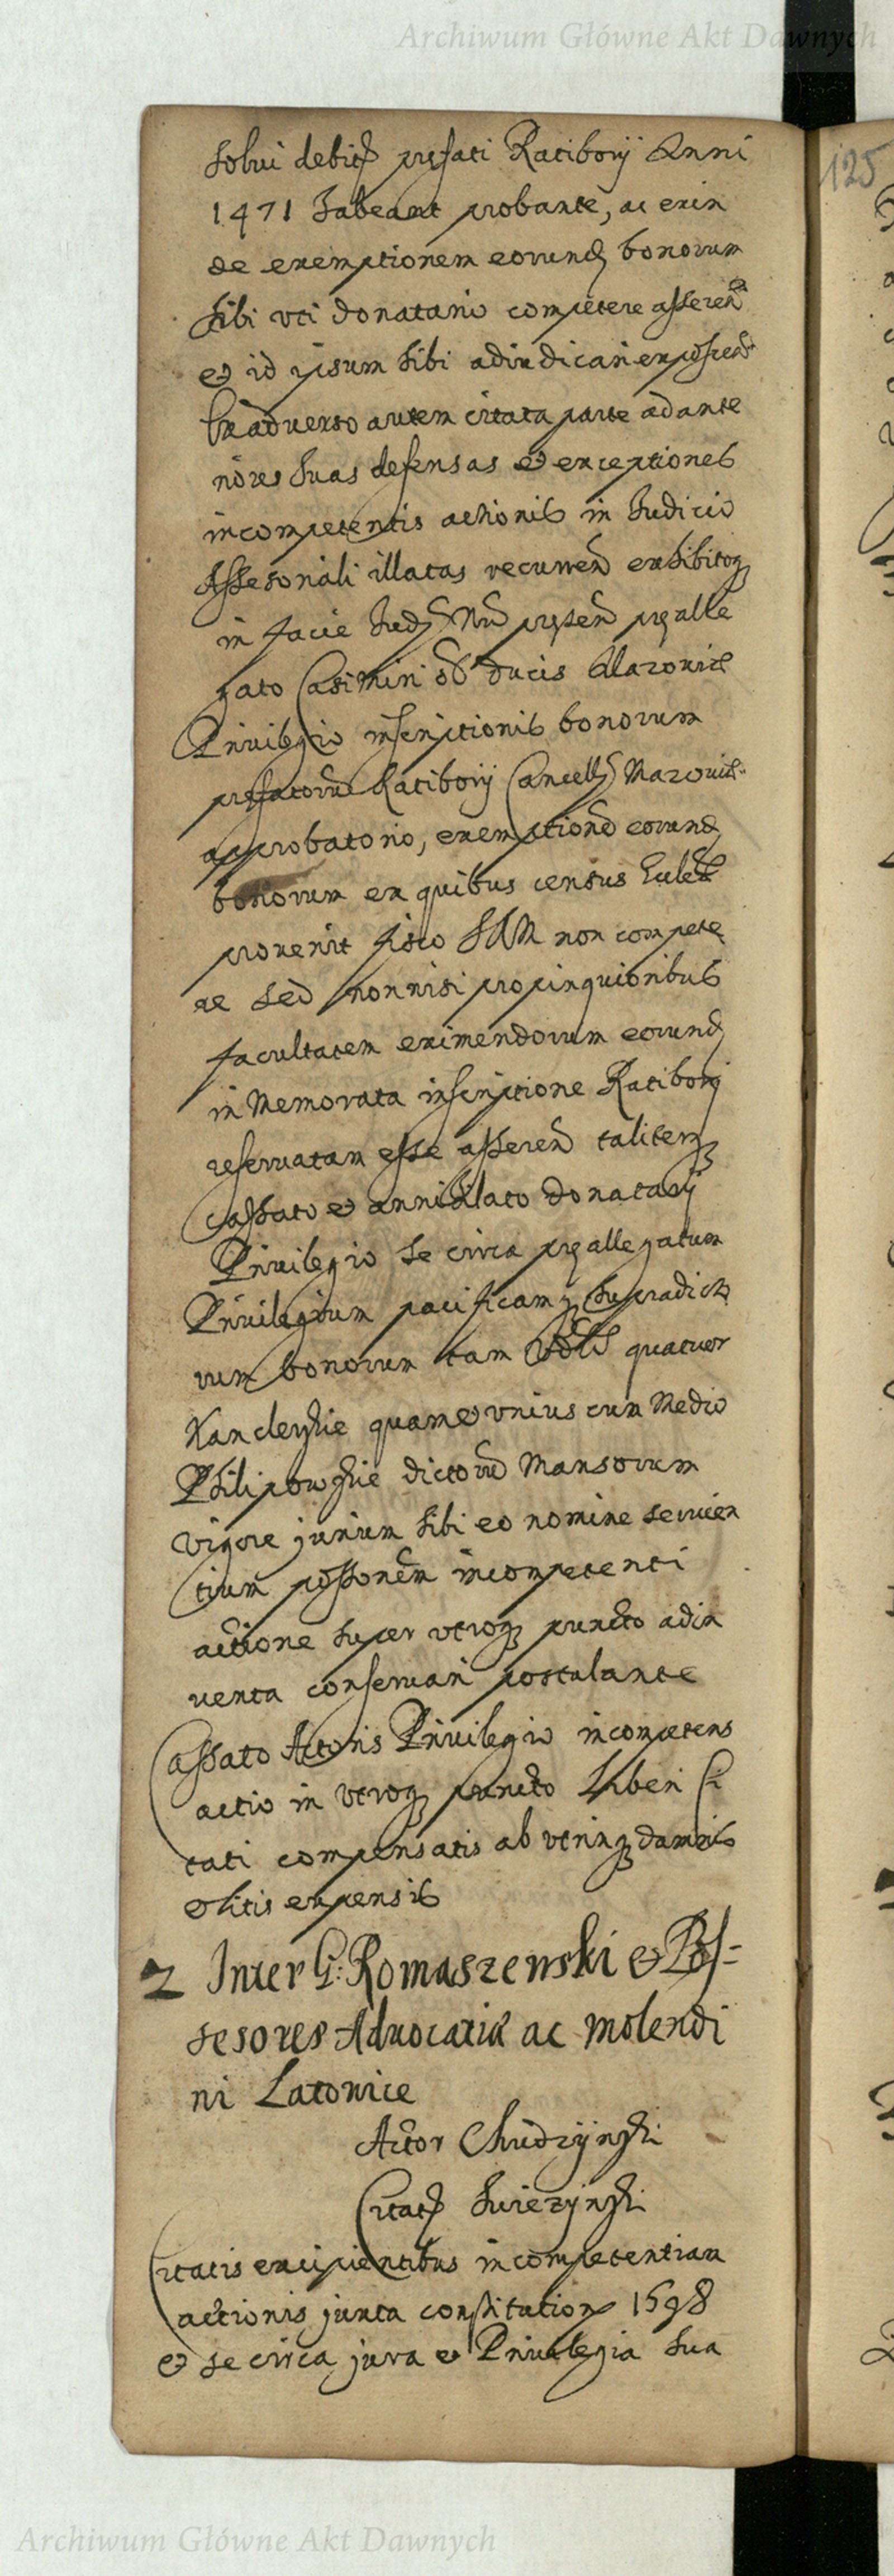 Archiwum Główne Akt Dawnych
125
solvi debitꝭ prefati Ratiborÿ Anni
1471 habeant probante, ac exin
de exemptionem eorund bonorum
sibi uti donatario competere asseren
et id ipsum sibi adiudicari exposcen
Ex adverso autem citata parte ad ante
riores suas defensas et exceptiones
incompetentis actionis in Judicio
Assesoriali illatas recurren exhibitoqꝫ
in facie Judÿ Nri presen pręalle
gato Casimiri ducis Mazoviæ
Privilegio inscriptionis bonorum
prefatoru Ratiborÿ Cancellÿ Mazoviæ
approbatorio, exemptione eorund
bonorum ex quibus census
provenit fisco SRM non compete
re sed nonnisi propinquioribus
facultatem eximendorum eorund
in Memorata inscriptione Ratiborÿ
reservatam esse asseren taliterqꝫ
cassato et annihilato donatarÿ
Privilegio se circa pręallegatum
Privilegium pacificamqꝫ supradicto
rum bonorum tam quatuor
Kanclerskie quam et unius cum Medio
Philipowskie dictoru Mansorum
vigore jurium sibi eo nomine servien
tium possionem incompetenti
actione super utroqꝫ puncto adin
venta conservari postulante
Cassato Actoris Privilegio incompetens
actio in utroqꝫ puncto Liberi Ci
tati compensatis ab utrinqꝫ damnis
et litis expensis
2 Inter G: Romaszewski et Pos=
sesores Advocatiæ ac molendi
ni Latowice
Actor Chudzÿnski
Citatꝭ Swiezÿnski
Citatis excipientibus incompetentiam
actionis juxta constitution 1598
et se circa jura et Privilegia sua
Archiwum Główne Akt Dawnych